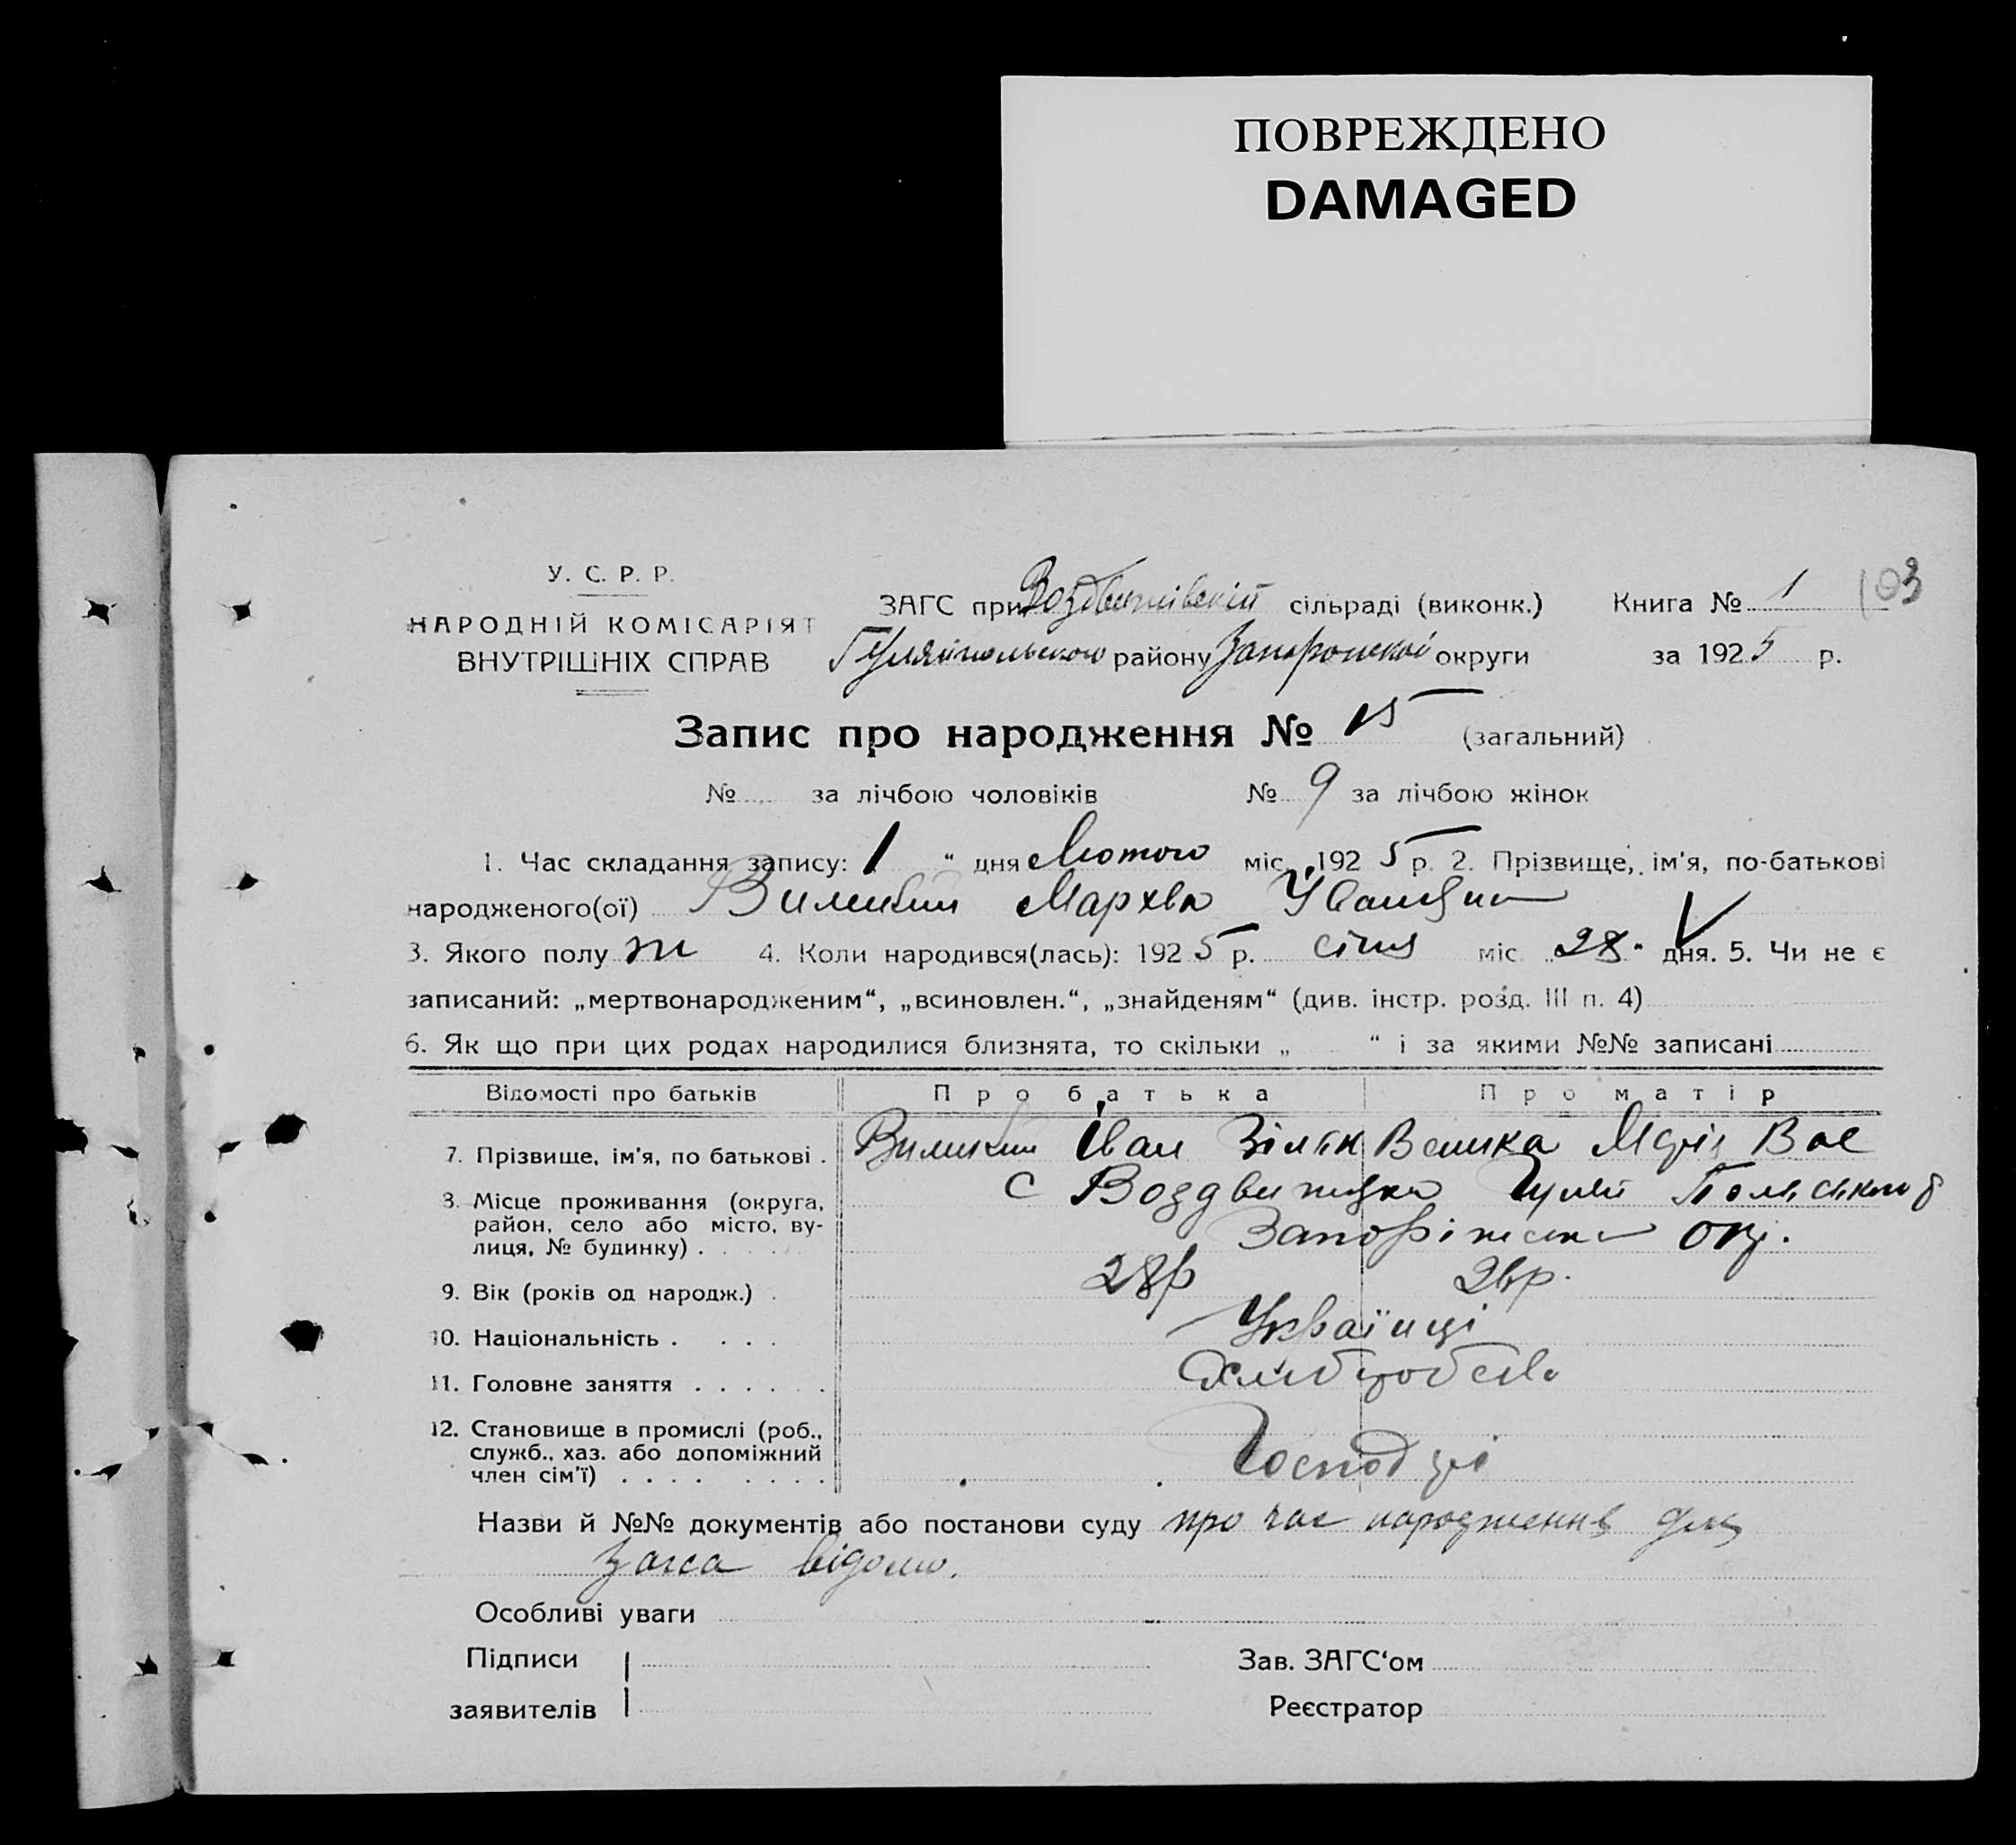 ПОВРЕЖДЕНО
DAMAGED
У. С. Р. Р.
НАРОДНІЙ КОМІСАРІЯТ
ВНУТРІШНІХ СПРАВ
ЗАГС при Воздвижівській сільраді (виконк.) Книга № 1 103
Гуляйпольского району Запорожской округи за 1925 р.
Запис про народження № 15 (загальний)
№ за лічбою чоловіків № 9 за лічбою жінок
1. Час складання запису: 1 “ дня Лютого міс. 1925 р. 2. Прізвище, ім'я, по-батькові
народженого(ої) Мархва
3. Якого полу ж 4. Коли народився(лась): 1925 р. січня міс. 28 “ дня. 5. Чи не є
записаний: „мертвонародженим“, „всиновлен.“, „знайденям“ (див. інстр. розд. III п. 4)
6. Як що при цих родах народилися близнята, то скільки „ “ і за якими №№ записані
Відомості про батьків Про батька Про матір
7. Прізвище, ім'я, по батькові . Іван Велика Марія Вас
8. Місце проживання (округа, район, село або місто, вулиця, № будинку) . С Воздвижівка Гуляй Польського
Запоріжської окр.
9. Вік (років од народж.) . 28р 26р.
10. Національність . Українці
11. Головне заняття . Хліборобство
12. Становище в промислі (роб., служб., хаз. або допоміжний член сім'ї) . Господарі
Назви й №№ документів або постанови суду про час народження для
Загса відомо.
Особливі уваги
Підписи
заявителів
Зав. ЗАГС‘ом
Реєстратор